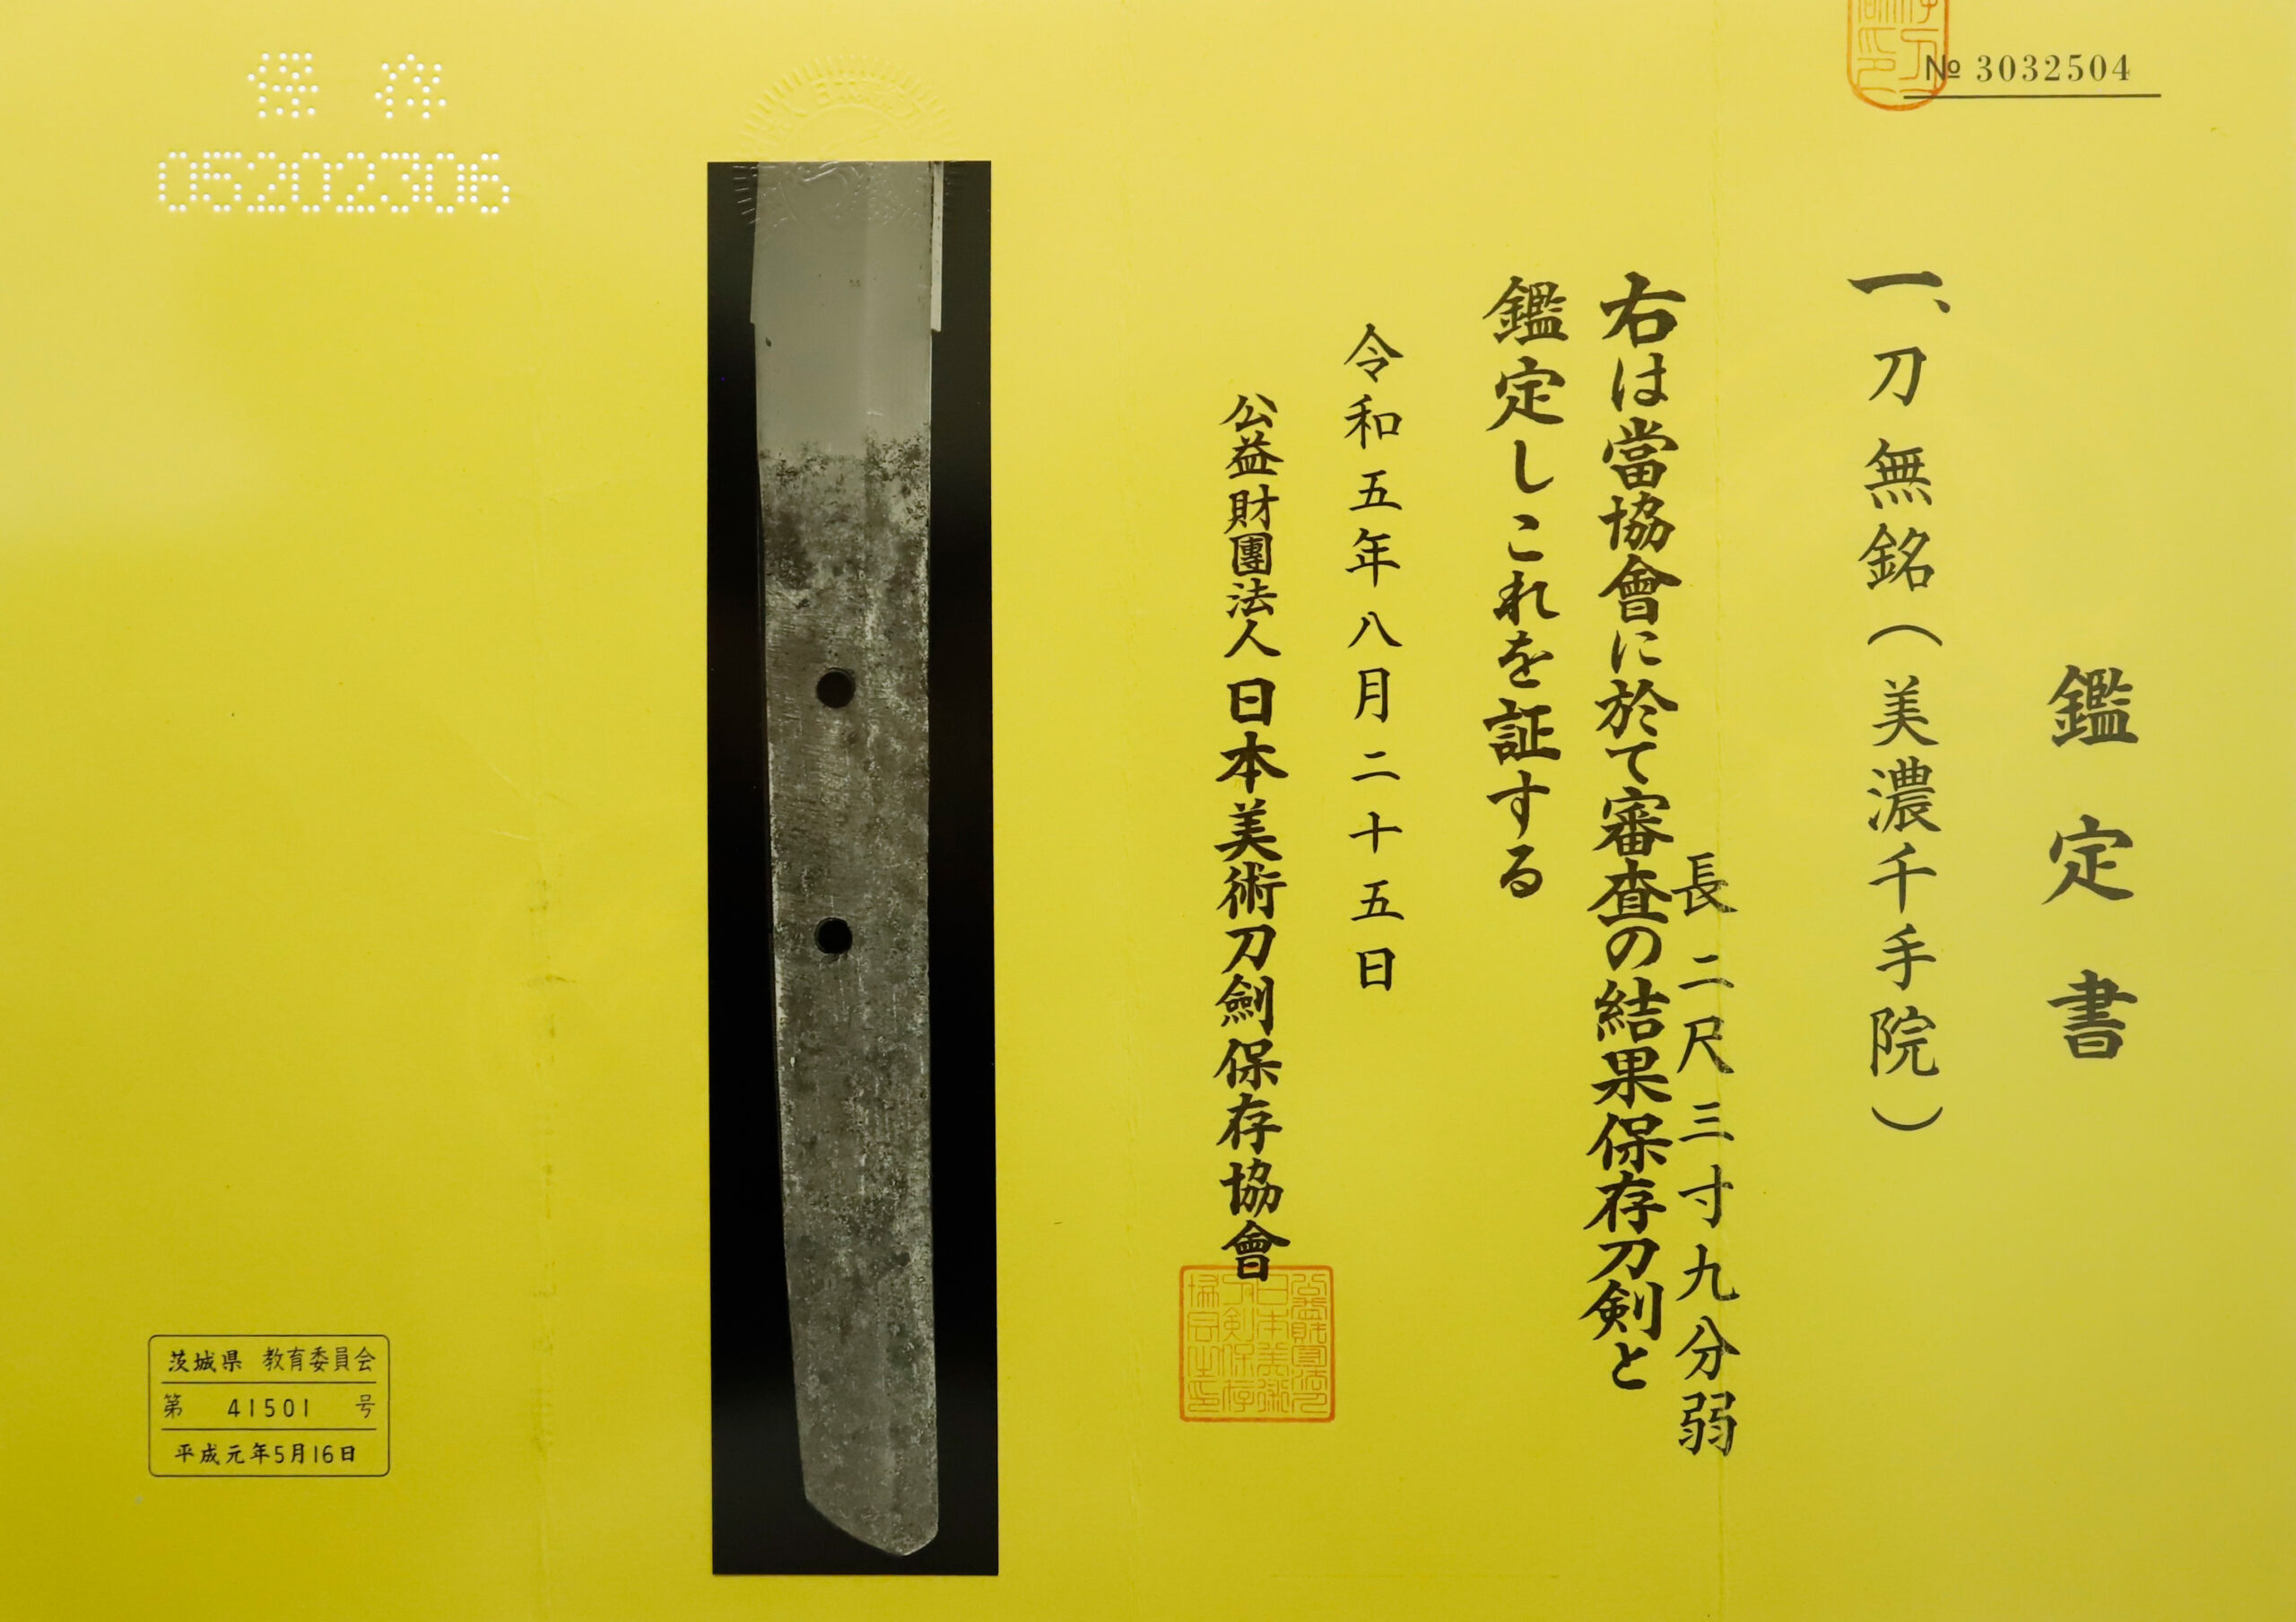 № 3032504
鑑定書
一、刀 無銘(美濃千手院)
長 二尺三寸九分弱
右は當協會に於て審査の結果保存刀剣と
鑑定しこれを証する
令和五年八月二十五日
公益財團法人 日本美術刀劍保存協會
保存
05202306
茨城県 教育委員会
第 41501 号
平成元年5月16日